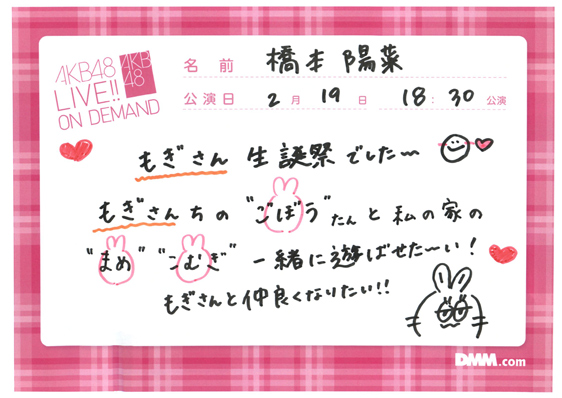 AKB48
LIVE!!
ON DEMAND
AKB
48
名前 橋本 陽菜
公演日 2月19日 18:30公演
もぎさん 生誕祭でした〜
もぎさんちの "ごぼう"たんと私の家の
"まめ" "こむぎ" 一緒に遊ばせた〜い!
もぎさんと仲良くなりたい!!
DMM.com